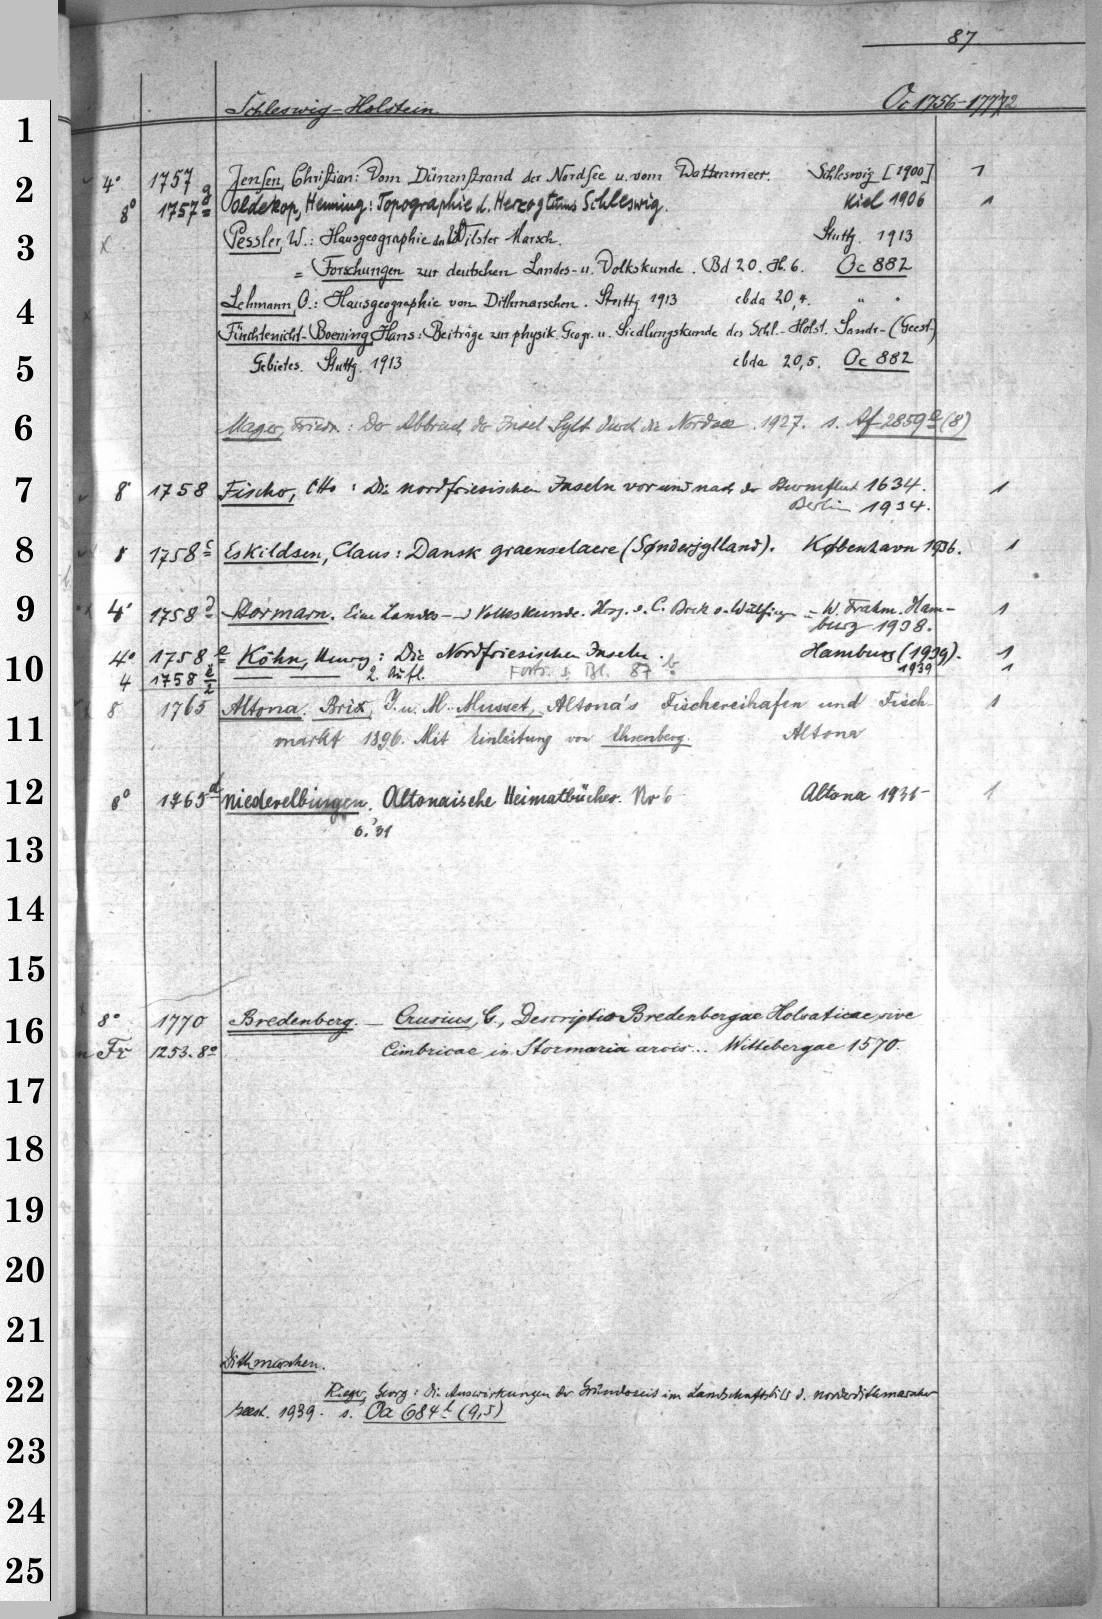 87
Schleswig-Holstein Oc 1756-1772
1
2 4° 1757 Jensen, Christian: Vom Dünenstrand der Nordsee u. vom Wattenmeer. Schleswig [1900] 1
8° 1757 a Oldekop, Henning: Topographie d. Herzogtums Schleswig. Kiel 1906 1
3 Pessler, W.: Hausgeographie der Wilster Marsch. Stuttg. 1913
= Forschungen zur deutschen Landes- u. Volkskunde. Bd 20. H. 6. Oc 882
4 Lehmann, O.: Hausgeographie von Dithmarschen. Stuttg 1913 ebda 20,4. " "
Füchtenicht-Boening, Hans: Beiträge zur physik. Geogr. u. Siedlungskunde des Schl.-Holst. Sandr-(Geest-)
5 Gebietes. Stuttg. 1913 ebda 20,5. Oc 882
6 Mager, Friedr.: Der Abbruch der Insel Sylt durch die Nordsee. 1927. s. Af 2859 a (8)
7 8° 1758 Fischer, Otto: Die nordfriesischen Inseln vor und nach der Sturmflut 1634. 1
Berlin 1934.
8 8 1758 c Eskildsen, Claus: Dansk graenselaere (Sønderjylland). København 1936. 1
9 4° 1758 d Stormarn. Eine Landes- u. Volkskunde. Hrsg. v. C. Bock v. Wülfingen u. W. Frahm. Ham- 1
burg 1938.
10 4° 1758 e Köhn, Henry: Die Nordfriesischen Inseln. Hamburg (1939). 1
4 1758 e/2 2. Aufl. Forts. s. Bl. 87 b 1939 1
8 1765 Altona. Brix, J. u. M. Musset, Altona's Fischereihafen und Fisch- 1
11 markt 1896. Mit Einleitung von Ehrenberg. Altona
12 8° 1765 d Niederelbingen. Altonaische Heimatbücher. Nr 6 Altona 1931 1
6.'31
13
14
15
16 8° 1770 Bredenberg. — Crusius, G., Descriptio Bredenbergae Holsaticae, sive
Fr 1253. 8° Cimbricae in Stormaria arcis... Wittebergae 1570.
17
18
19
20
21
Dithmarschen.
22 Rieger, Georg: Die Auswirkungen der Gründerzeit im Landschaftsbild d. norderdithmarscher
Geest. 1939. s. Oa 684 b (9,5)
23
24
25